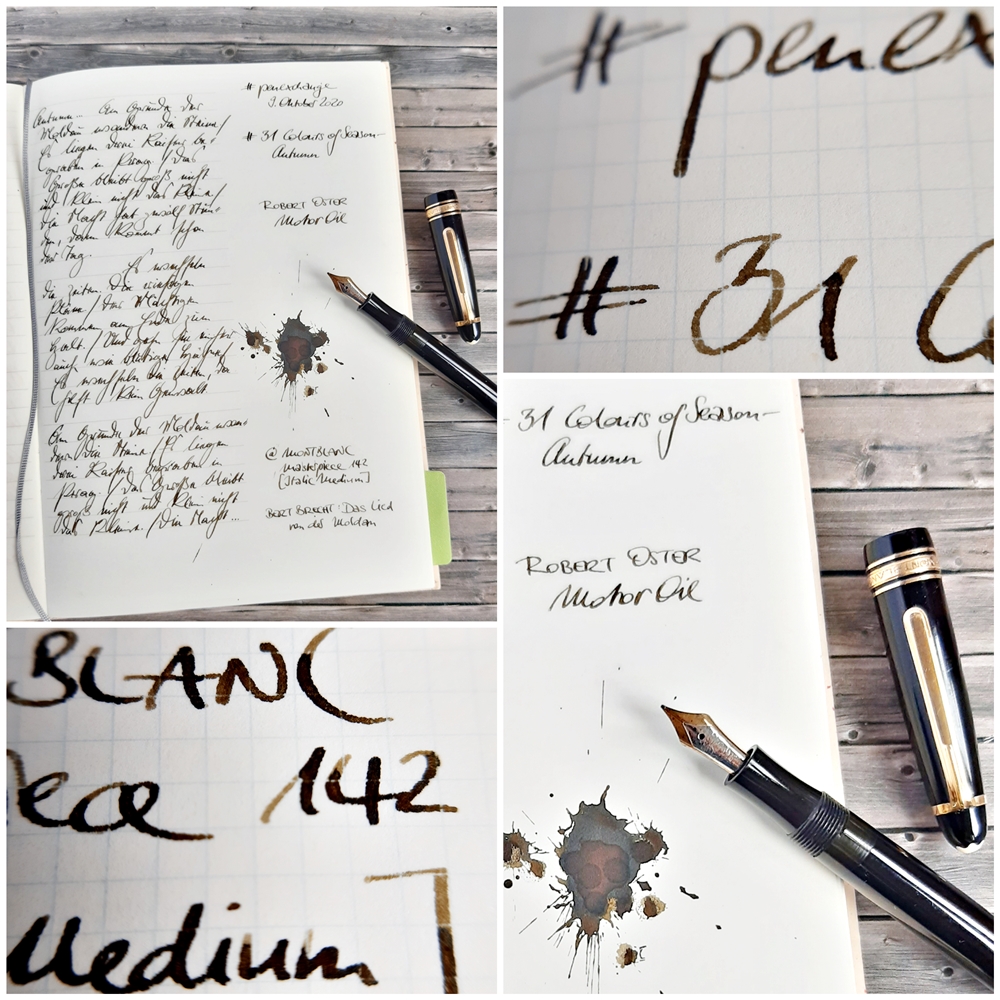 Autumn... Am Grunde der
Moldau wandern die Steine/
Es liegen drei Kaiser be-
graben in Prag / Das
Große bleibt groß nicht
und klein nicht das Kleine/
Die Nacht hat zwölf Stun-
den, dann kommt schon
der Tag.
Es wechseln
die Zeiten. Die riesigen
Pläne / der Mächtigen
kommen am Ende zum
Halt. / Und gehn sie einher
auch wie blutige
Es wechseln die Zeiten, da
hilft kein Gewalt.
Am Grunde der Moldau wan-
dern die Steine / Es liegen
drei Kaiser begraben in
Prag / Das Große bleibt
groß nicht und klein nicht
das Kleine. / Die Nacht...
# penexchange
9. Oktober 2020
# 31 Colours of Season-
Autumn
ROBERT OSTER
Motor Oil
@ MONTBLANC
Masterpiece 142
[Italic Medium]
BERT BRECHT: Das Lied
von der Moldau
# penex
# 31 C
BLANC
ece 142
Medium]
- 31 Colours of Season-
Autumn
ROBERT OSTER
Motor Oil